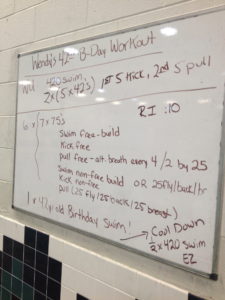 Wendy's 42nd B-Day Workout
WU 420 swim,
2x (5 x 42's) 1st 5 Kick, 2nd 5 pull
RI :10
6 x (7 x 75's
Swim free - build
Kick free
pull free - alt. breath every 4/2 by 25
Swim non-free build OR 25 fly/back/br
Kick non-free
pull (25 fly/25 back/25 breast)
1 x 42 yr old Birthday Swim!
→ Cool Down
420 swim
EZ